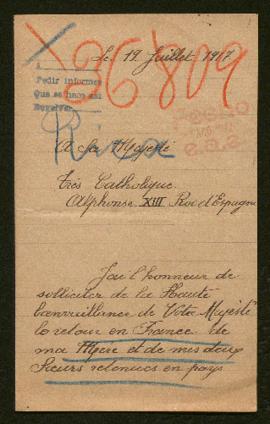 Le 19 Juillet 1917
36809
Pedir informes
Que se haga
Riva
A Sa Majesté
Très Catholique
Alphonse XIII Roi d'Espagne
J'ai l'honneur de
solliciter de la Haute
bienveillance de Votre Majesté
le retour en France de
ma Mère et de mes deux
Sœurs retenues en pays